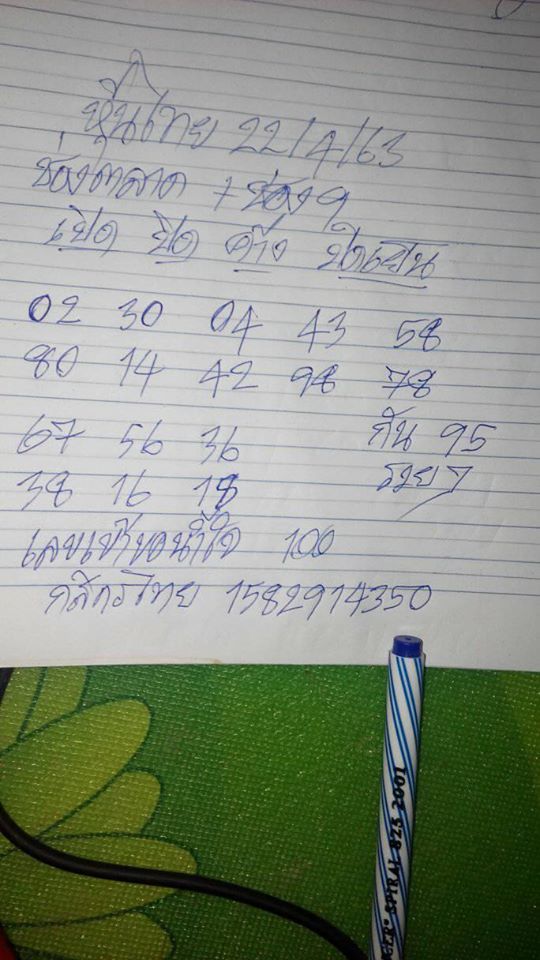 หุ้นไทย 22/4/63
ช่องตลาด + ช่อง 9
เปิด ปิด ค้าง ปิดเย็น
02 30 04 43 58
80 14 42 98 78
67 56 36 กัน 95
38 16 18 รวย ๆ
เลขเข้าขอน้ำใจ 100
กสิกรไทย 1582914350
SPIRAL 825 2001